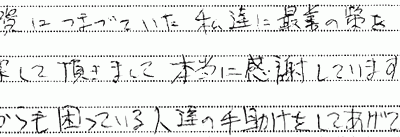 につまづていた私達に最業の策を
して頂きまして本当に感謝しています
からも困っている人達の手助けをしてあげて